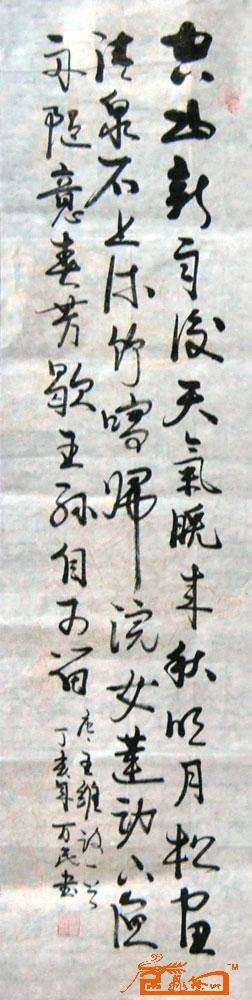 空山新雨後天氣晚来秋明月松间
清泉石上流竹喧歸浣女蓮動下漁
舟隨意春芳歇王孫自可留
唐王維诗一首
丁亥年万民书